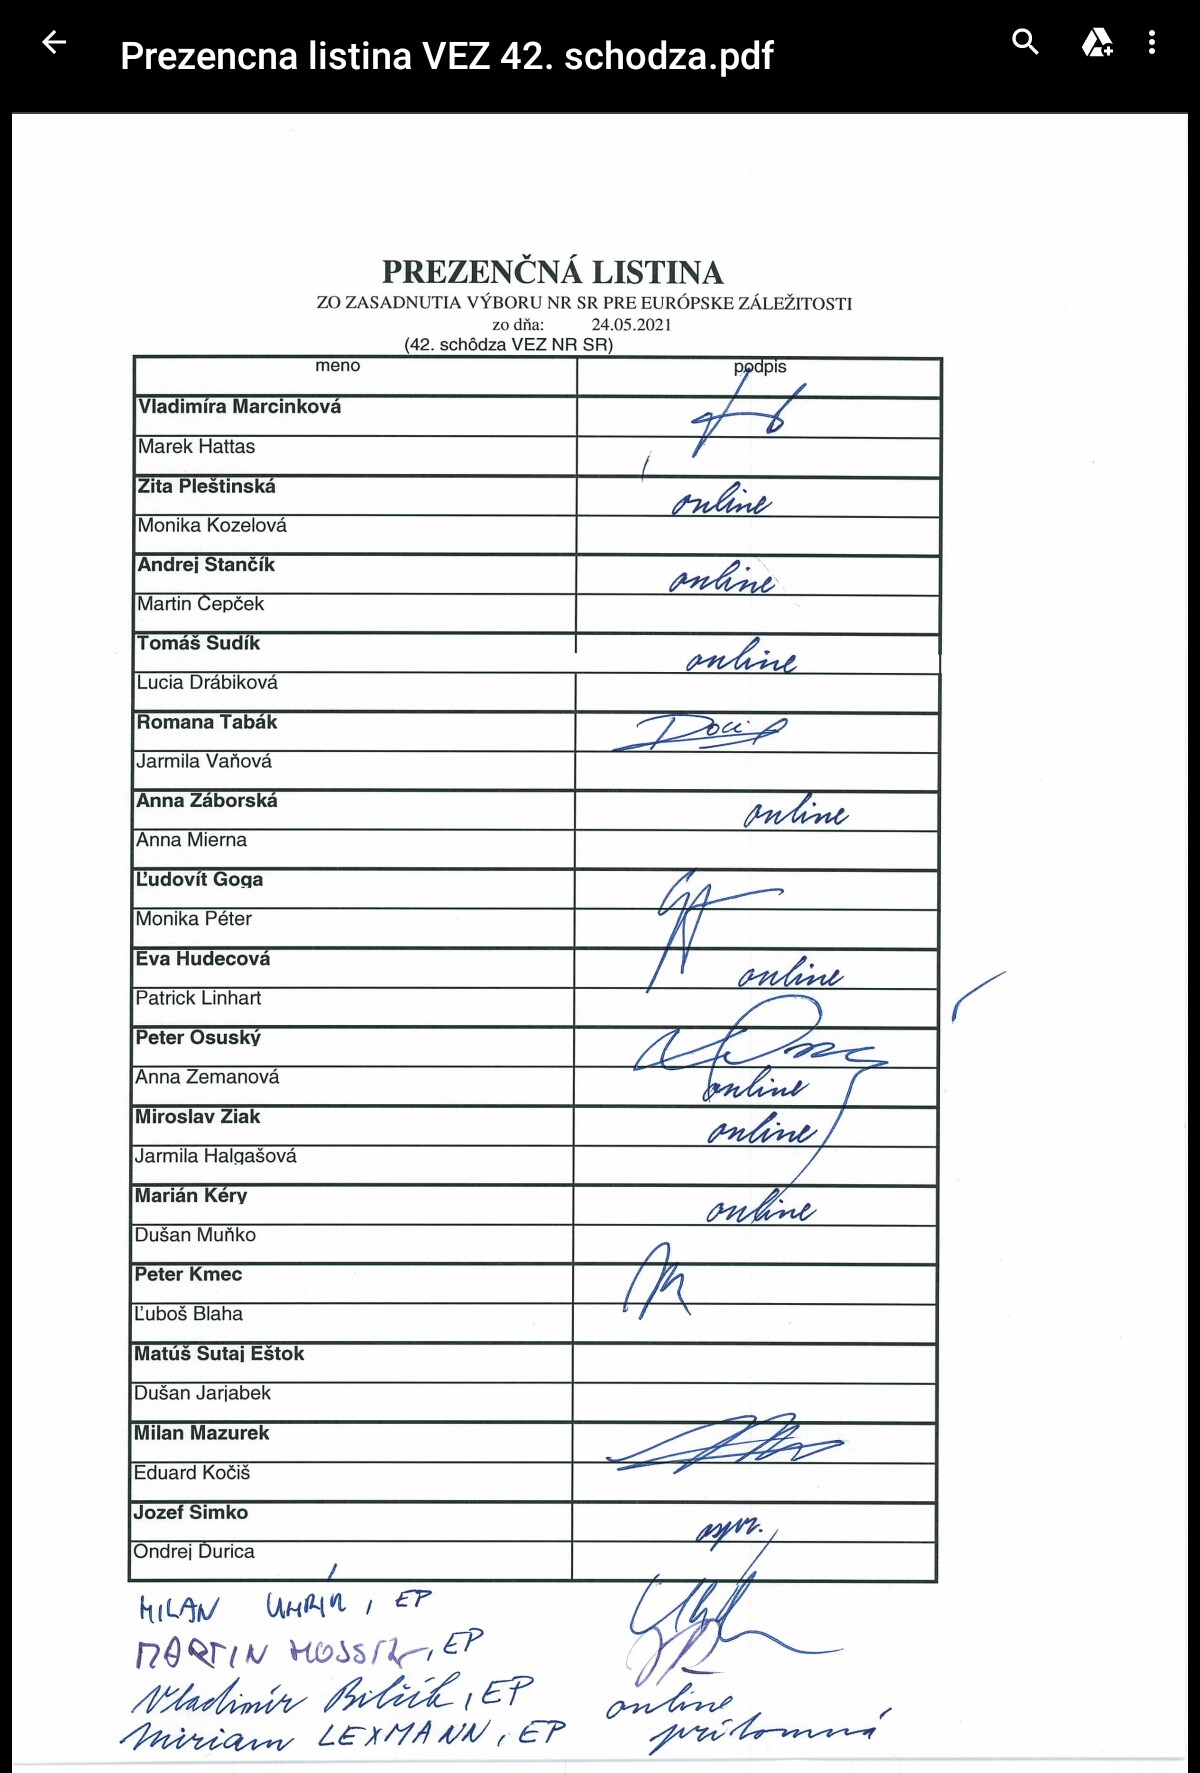 Prezencna listina VEZ 42. schodza.pdf
PREZENČNÁ LISTINA
ZO ZASADNUTIA VÝBORU NR SR PRE EURÓPSKE ZÁLEŽITOSTI
zo dňa: 24.05.2021
(42. schôdza VEZ NR SR)
meno podpis
Vladimíra Marcinková
Marek Hattas
Zita Pleštinská online
Monika Kozelová
Andrej Stančík online
Martin Čepček
Tomáš Sudík online
Lucia Drábiková
Romana Tabák
Jarmila Vaňová
Anna Záborská online
Anna Mierna
Ľudovít Goga
Monika Péter
Eva Hudecová online
Patrick Linhart
Peter Osuský
Anna Zemanová online
Miroslav Žiak online
Jarmila Halgašová
Marián Kéry online
Dušan Muňko
Peter Kmec
Ľuboš Blaha
Matúš Šutaj Eštok
Dušan Jarjabek
Milan Mazurek
Eduard Kočiš
Jozef Šimko ospr.
Ondrej Ďurica
MILAN UHRÍK, EP
MARTIN HOJSÍK, EP
Vladimír Bilčík, EP online
Miriam LEXMANN, EP prítomná